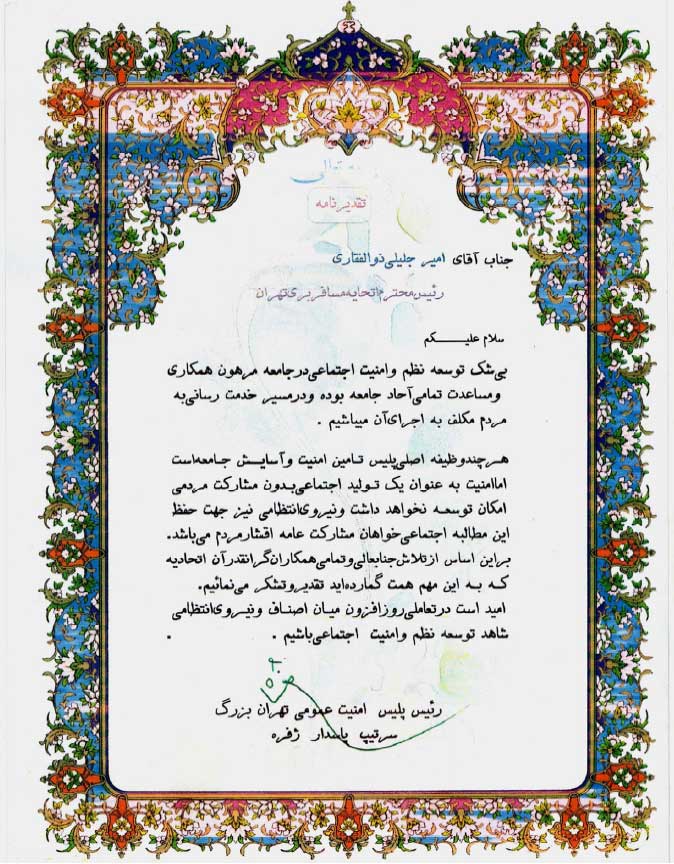 تعالی
تقدیرنامه
جناب آقای امیر جلیلی ذوالفقاری
رئیس محترم اتحایه مسافربری تهران
سلام علیکم
بی شک توسعه نظم و امنیت اجتماعی در جامعه مرهون همکاری
و مساعدت تمامی آحاد جامعه بوده و در مسیر خدمت رسانی به
مردم مکلف به اجرای آن میباشیم .
هر چند وظیفه اصلی پلیس تامین امنیت و آسایش جامعه است
اما امنیت به عنوان یک تولید اجتماعی بدون مشارکت مردمی
امکان توسعه نخواهد داشت و نیروی انتظامی نیز جهت حفظ
این مطالبه اجتماعی خواهان مشارکت عامه اقشار مردم می باشد.
بر این اساس از تلاش جنابعالی و تمامی همکاران گرانقدر آن اتحادیه
که به این مهم همت گمارده اید تقدیر و تشکر می نمائیم.
امید است در تعاملی روز افزون میان اصناف و نیروی انتظامی
شاهد توسعه نظم و امنیت اجتماعی باشیم . .
رئیس پلیس امنیت عمومی تهران بزرگ
سرتیپ پاسدار ژفره